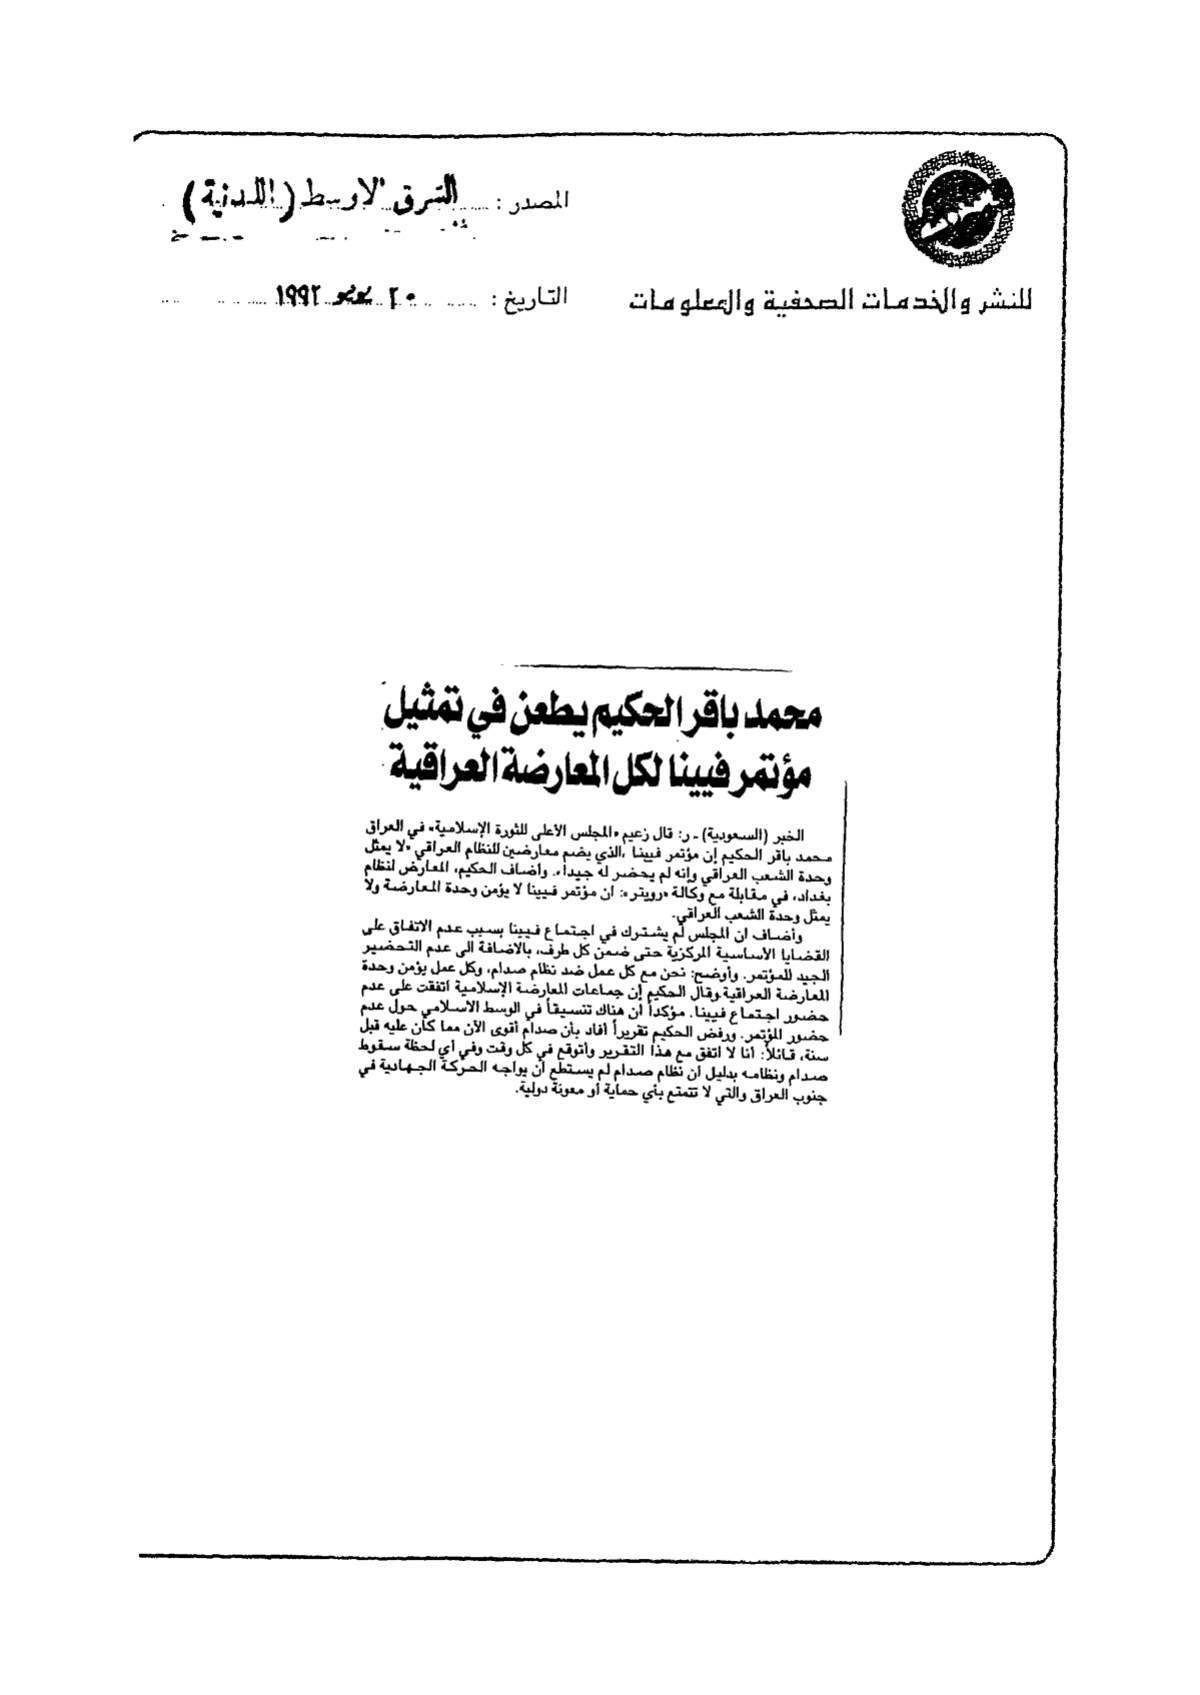 المصدر : الشرق الاوسط (اللندنية)
للنشر والخدمات الصحفية والمعلومات
التاريخ : ٢٠ يونيو ١٩٩٢
محمد باقر الحكيم يطعن في تمثيل
مؤتمر فيينا لكل المعارضة العراقية
الخبر (السعودية) ـ ر: قال زعيم «المجلس الأعلى للثورة الإسلامية» في العراق
محمد باقر الحكيم إن مؤتمر فيينا ،الذي يضم معارضين للنظام العراقي «لا يمثل
وحدة الشعب العراقي وإنه لم يحضر له جيداً». وأضاف الحكيم، المعارض لنظام
بغداد، في مقابلة مع وكالة «رويتر»: ان مؤتمر فيينا لا يؤمن وحدة المعارضة ولا
يمثل وحدة الشعب العراقي.
وأضاف ان المجلس لم يشترك في اجتماع فيينا بسبب عدم الاتفاق على
القضايا الأساسية المركزية حتى ضمن كل طرف، بالاضافة الى عدم التحضير
الجيد للمؤتمر. وأوضح: نحن مع كل عمل ضد نظام صدام، وكل عمل يؤمن وحدة
المعارضة العراقية.وقال الحكيم إن جماعات المعارضة الإسلامية اتفقت على عدم
حضور اجتماع فيينا. مؤكداً أن هناك تنسيقاً في الوسط الاسلامي حول عدم
حضور المؤتمر. ورفض الحكيم تقريراً أفاد بأن صدام أقوى الآن مما كان عليه قبل
سنة، قائلاً: أنا لا اتفق مع هذا التقرير وأتوقع في كل وقت وفي أي لحظة سقوط
صدام ونظامه بدليل ان نظام صدام لم يستطع أن يواجه الحركة الجهادية في
جنوب العراق والتي لا تتمتع بأي حماية أو معونة دولية.